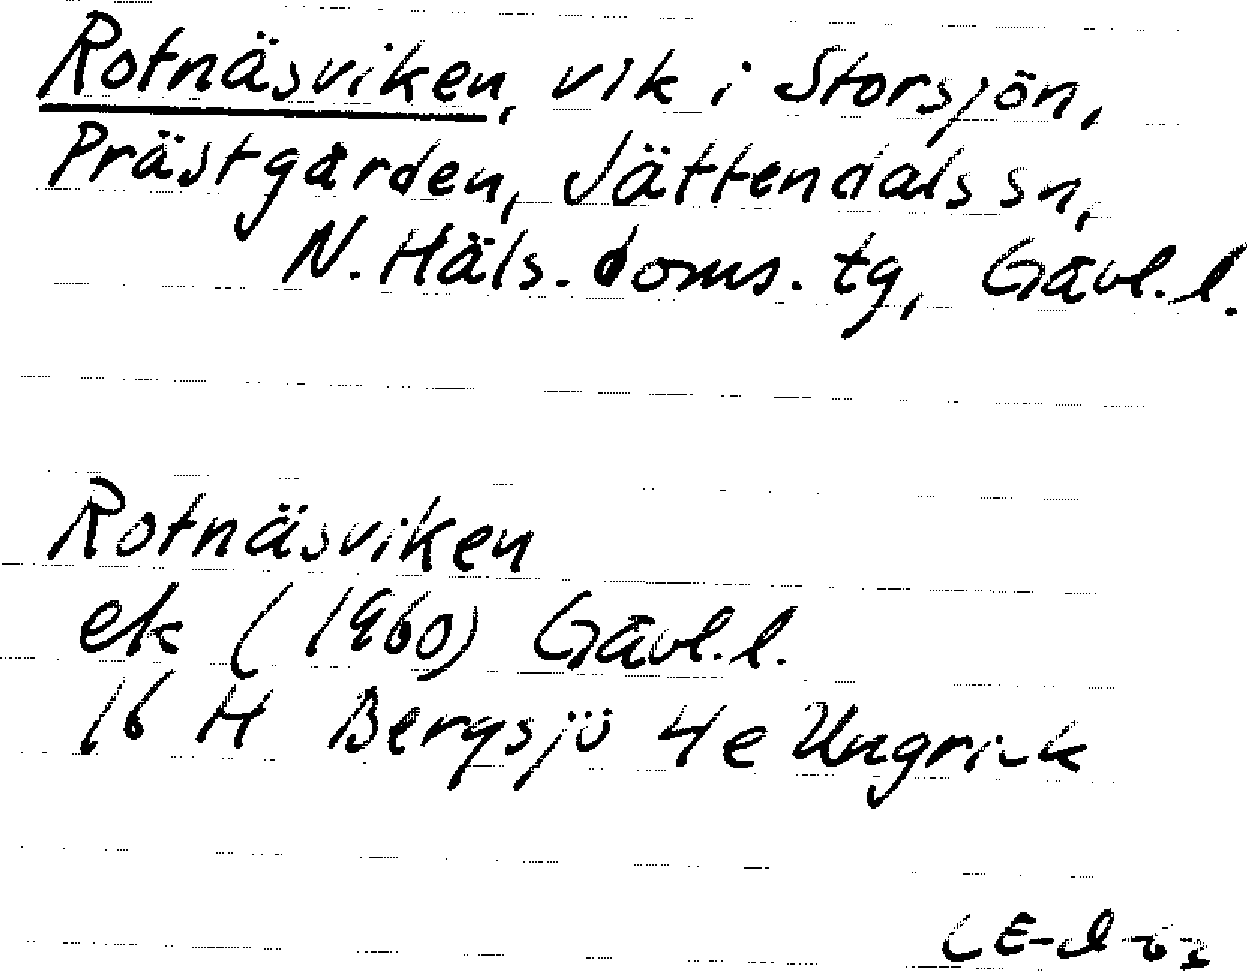 Rotnäsviken, vik i Storsjön,
Prästgården, Jättendals sn,
N. Häls. doms. tg, Gävl. l.
Rotnäsviken
ek (1960) Gävl. l.
16 H Bergsjö 4e Ungrick